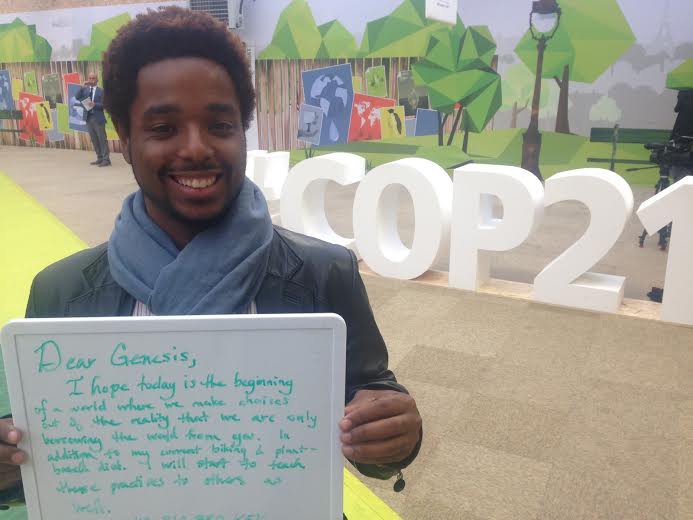 COP21
Dear Genesis,
I hope today is the beginning
of a world where we make choices
out of the reality that we are only
borrowing the world from you. In
addition to my current biking & plant-
based diet. I will start to teach
these practices to others as
well.